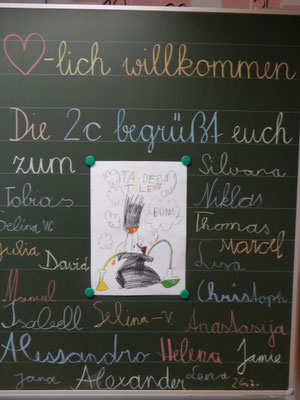 ♡-lich willkommen
Die 2c begrüßt euch
zum
TAG DER
TALENTE
BOM!
Silvana
Tobias
Niklas
Selina W.
Thomas
Julia
Marcel
David
Lisa
Manuel
Christoph
Isabell
Selina-V.
Anastasija
Alessandro Helena Jamie
Jana Alexander Lena